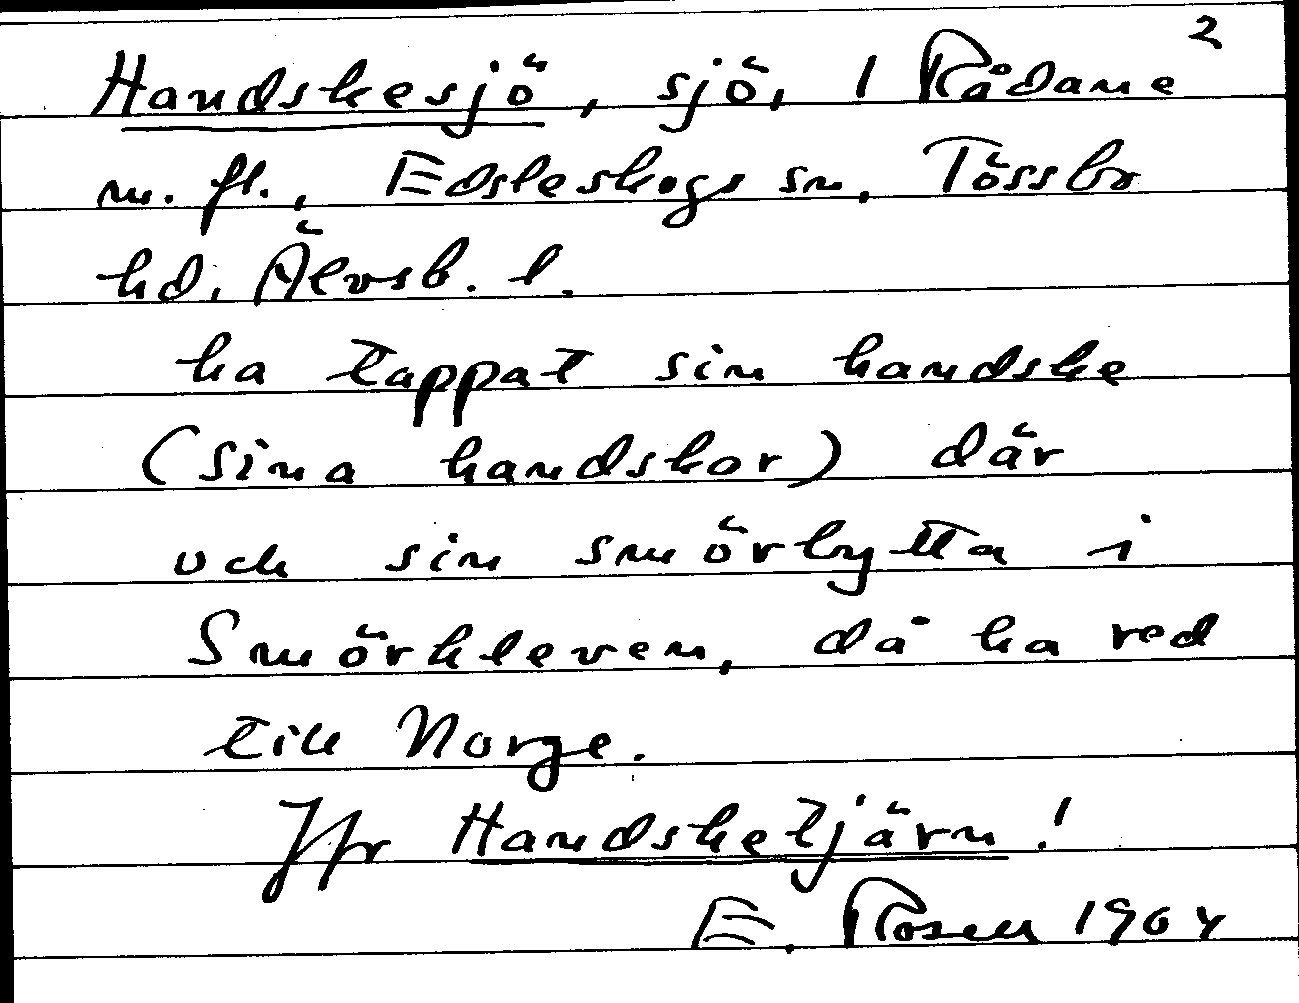 2
Handskesjö, sjö, 1 Rådane
m. fl., Edsleskogs sn, Tössbo
hd, Älvsb. l.
ha tappat sin handske
(sina handskar) där
och sin smörbytta i
Smörkleven, då ha red
till Norge.
Jfr Handsketjärn!
E. Rosen 1904